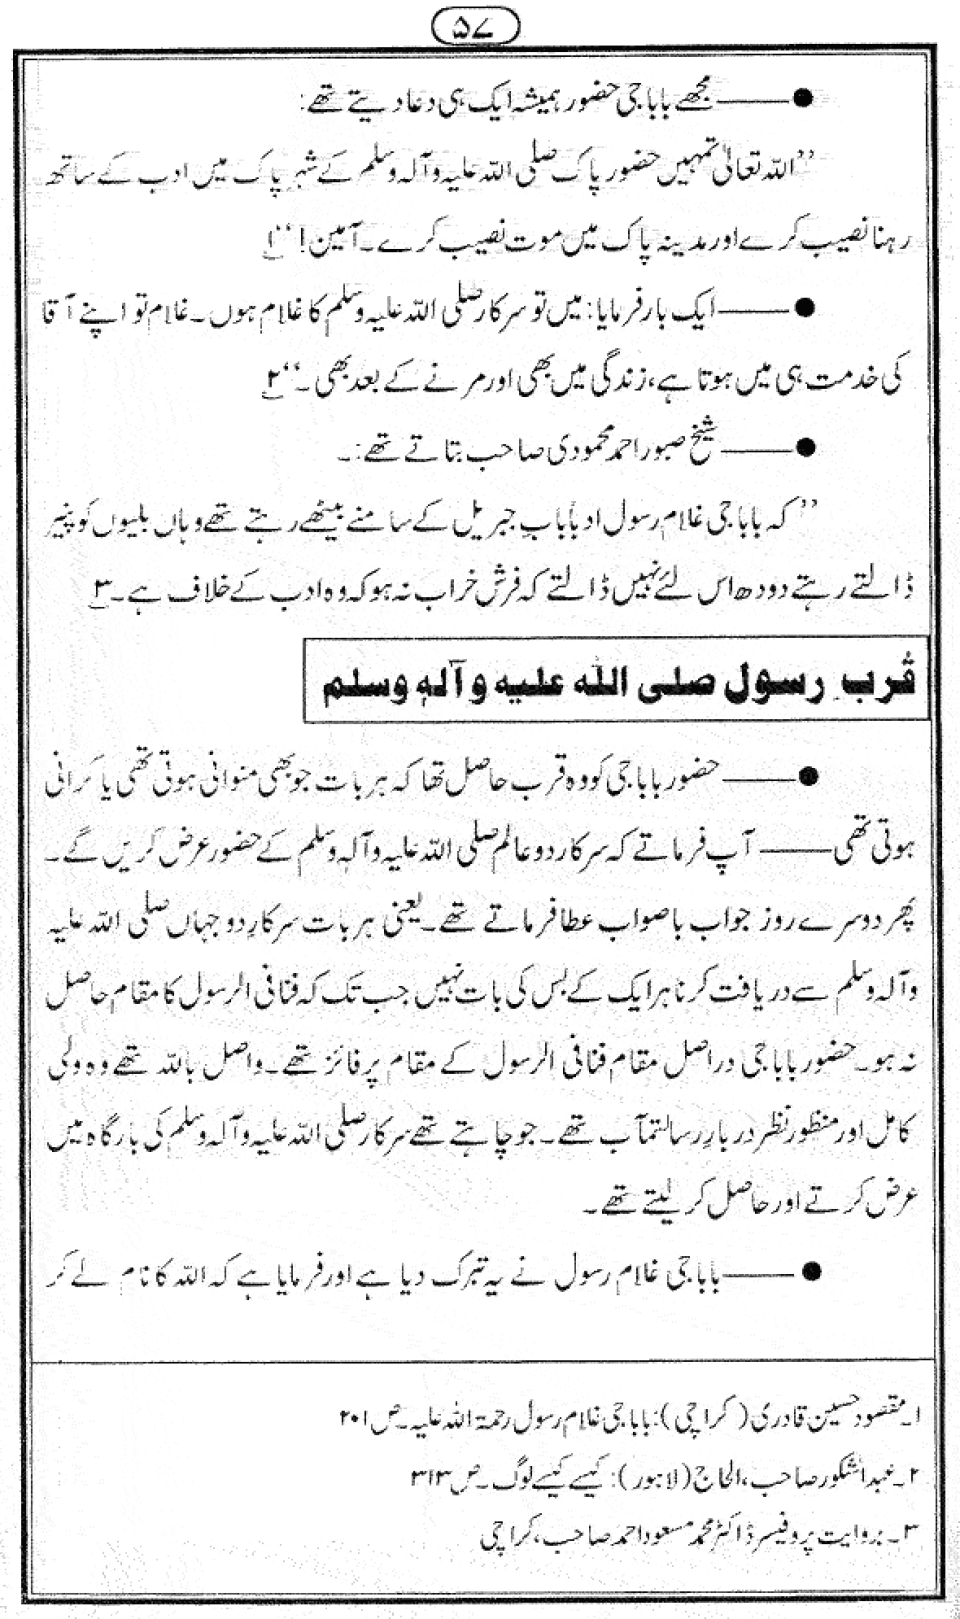 ۵۷
●——— مجھے بابا جی حضور ہمیشہ ایک ہی دعا دیتے تھے:
’’اللہ تعالیٰ تمہیں حضور پاک صلی اللہ علیہ وآلہ وسلم کے شہر پاک میں ادب کے ساتھ
رہنا نصیب کرے اور مدینہ پاک میں موت نصیب کرے۔ آمین!‘‘۱
●——— ایک بار فرمایا: میں تو سرکار صلی اللہ علیہ وسلم کا غلام ہوں۔ غلام تو اپنے آقا
کی خدمت ہی میں ہوتا ہے، زندگی میں بھی اور مرنے کے بعد بھی۔‘‘۲
●——— شیخ صبور احمد محمودی صاحب بتاتے تھے:۔
’’کہ بابا جی غلام رسول ادباً بابِ جبریل کے سامنے بیٹھے رہتے تھے وہاں بلیوں کو پنیر
ڈالتے رہتے دودھ اس لئے نہیں ڈالتے کہ فرش خراب نہ ہو کہ وہ ادب کے خلاف ہے۔۳
قُرب رسول صلی اللہ علیہ وآلہٖ وسلم
●——— حضور بابا جی کو وہ قرب حاصل تھا کہ ہر بات جو بھی منوانی ہوتی تھی یا کرانی
ہوتی تھی——— آپ فرماتے کہ سرکار دو عالم صلی اللہ علیہ وآلہٖ وسلم کے حضور عرض کریں گے۔
پھر دوسرے روز جواب باصواب عطا فرماتے تھے۔ یعنی ہر بات سرکارِ دو جہاں صلی اللہ علیہ
وآلہ وسلم سے دریافت کرنا ہر ایک کے بس کی بات نہیں جب تک کہ فنافی الرسول کا مقام حاصل
نہ ہو۔ حضور بابا جی دراصل مقام فنافی الرسول کے مقام پر فائز تھے۔ واصل باللہ تھے وہ ولی
کامل اور منظور نظر دربارِ رسالتمآب تھے۔ جو چاہتے تھے سرکار صلی اللہ علیہ وآلہ وسلم کی بارگاہ میں
عرض کرتے اور حاصل کر لیتے تھے۔
●——— بابا جی غلام رسول نے یہ تبرک دیا ہے اور فرمایا ہے کہ اللہ کا نام لے کر
۱۔ مقصود حسین قادری (کراچی): بابا جی غلام رسول رحمۃ اللہ علیہ۔ ص ۲۰۱
۲۔ عبدالشکور صاحب، الحاج (لاہور): کیسے کیسے لوگ۔ ص ۳۱۳
۳۔ بروایت پروفیسر ڈاکٹر محمد مسعود احمد صاحب، کراچی